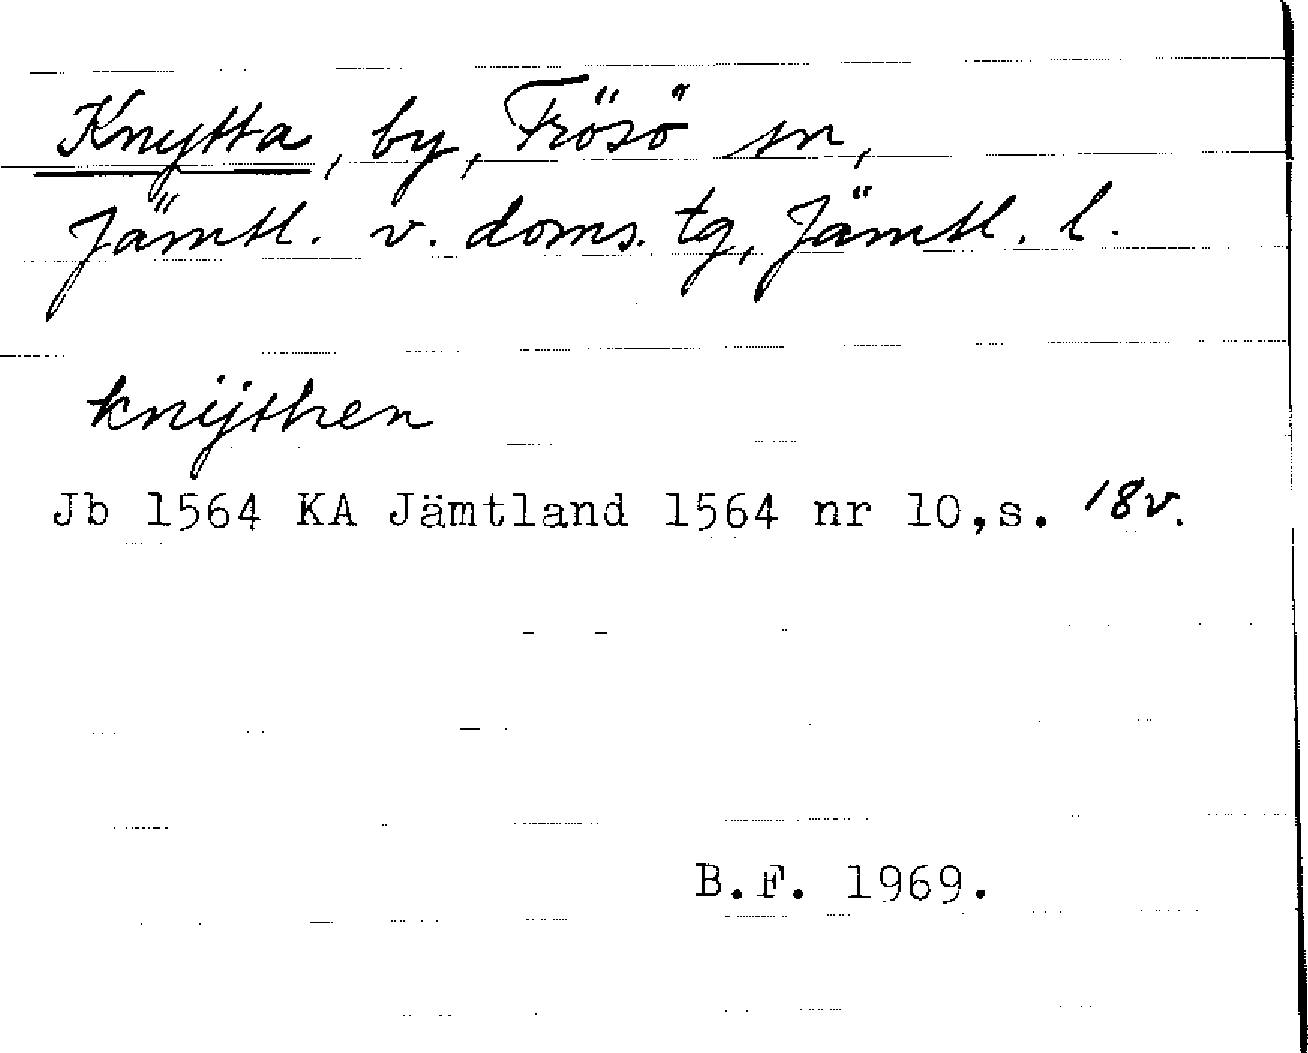 Knytta, by, Frösö sn,
Jämtl. v. doms. tg, Jämtl. l.
knijthen
Jb 1564 KA Jämtland 1564 nr 10,s. 18v.
B.F. 1969.